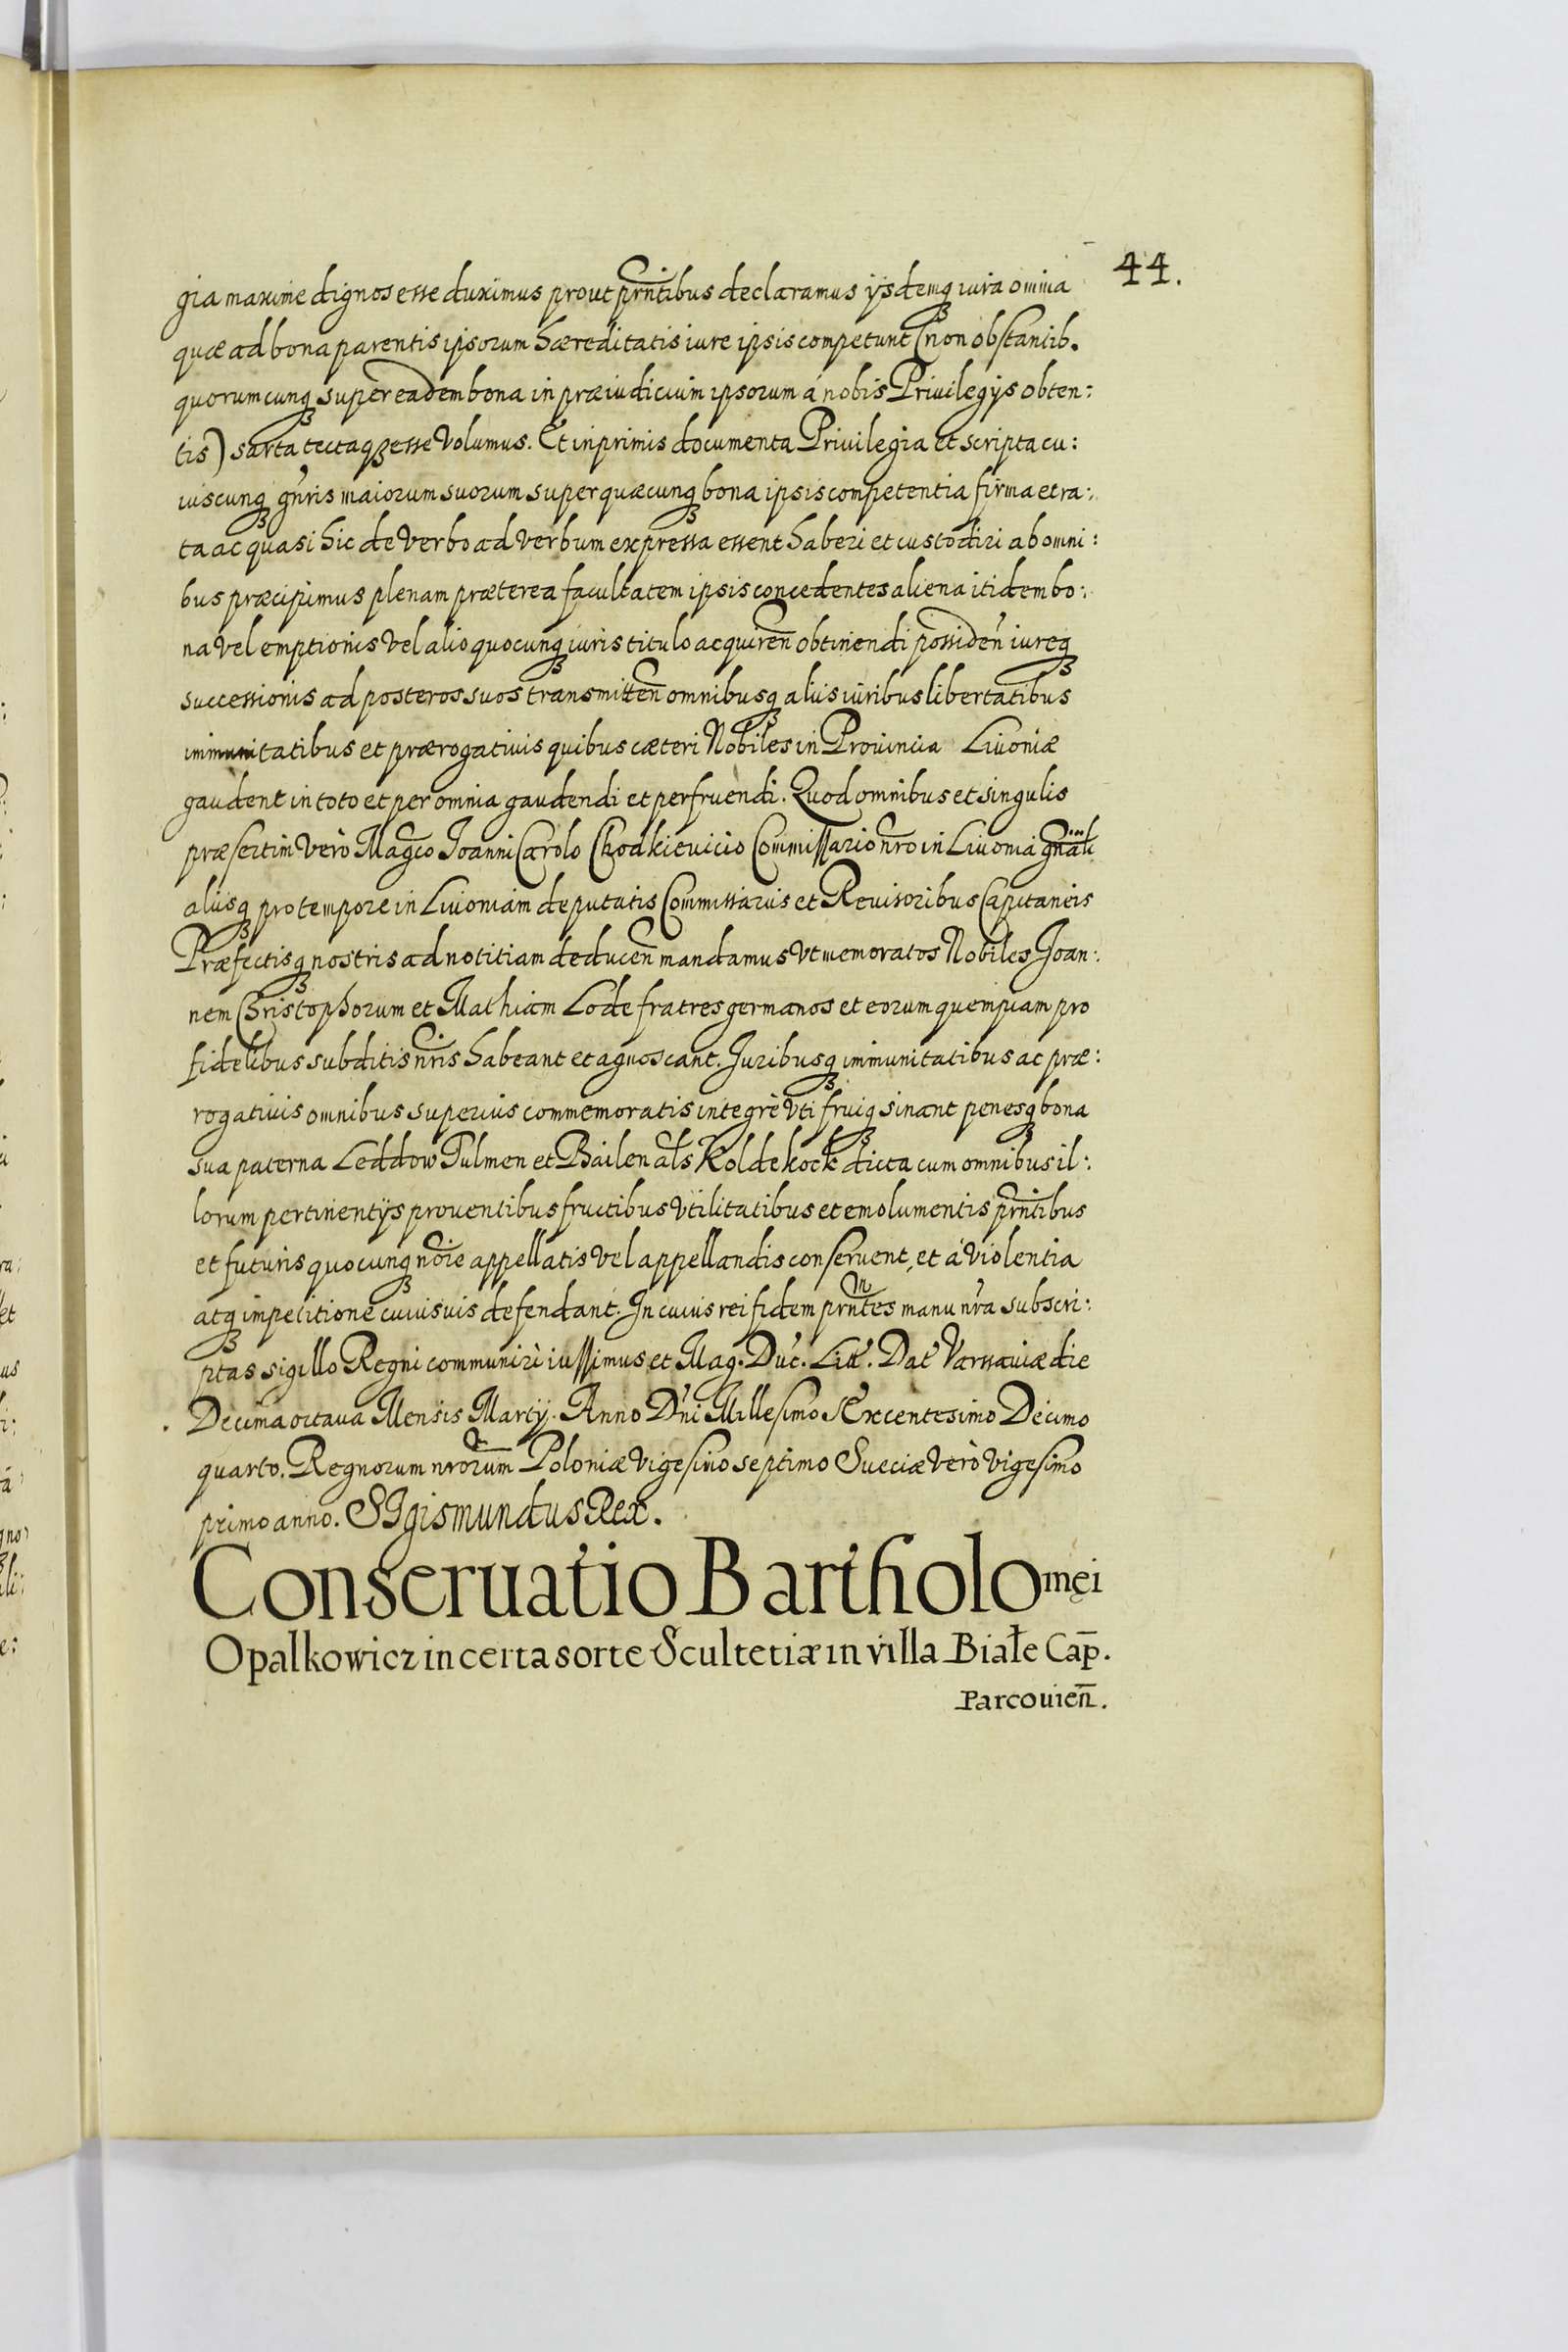 44.
gia maxime dignos esse duximus prout prn̄tibus declaramus ijsdemq₃ iura omnia
quæ ad bona parentis ipsorum hæreditatis iure ipsis competunt (non obstantib.
quorumcunq₃ super eadem bona in præiudicium ipsorum á nobis Priuilegijs obten:
tis) sarta tectaq₃ esse Volumus. Et inprimis documenta Priuilegia et scripta cu:
iuscunq₃ gn̄ris maiorum suorum super quæcunq₃ bona ipsis competentia firma et ra:
ta ac quasi hic de Verbo ad Verbum expressa essent haberi et custodiri ab omni:
bus præcipimus plenam præterea facultatem ipsis concedentes aliena itidem bo:
na vel emptionis Vel alio quocunq₃ iuris titulo acquiren̄ obtinendi possiden̄ iureq₃
successionis ad posteros suos transmitten̄ omnibusq₃ alijs iuribus libertatibus
immunitatibus et prærogatiuis quibus cæteri Nobiles in Prouincia Liuoniæ
gaudent in toto et per omnia gaudendi et perfruendi. Quod omnibus et singulis
præsertim Verò Magco Ioanni Carolo Chodkieuicio Commissario nr̄o in Liuonia gn̄ali
alijsq₃ pro tempore in Liuoniam deputatis Commissarijs et Reuisoribus Capitaneis
Præfectisq₃ nostris ad notitiam deducen̄ mandamus Vt memoratos Nobiles Joan:
nem Christophorum et Mathiam Lode fratres germanos et eorum quempiam pro
fidelibus subditis nr̄is habeant et agnoscant. Juribusq₃ immunitatibus ac præ:
rogatiuis omnibus superius commemoratis integrè Vti fruiq₃ sinant penesq₃ bona
sua paterna Leddow Pulmen et Bailen al̄s Koldekock dicta cum omnibus il:
lorum pertinentijs prouentibus fructibus Vtilitatibus et emolumentis prn̄tibus
et futuris quocunq₃ nōie appellatis Vel appellandis conseruent, et á violentia
atq₃ impetitione cuiusuis defendant. In cuius rei fidem prn̄tes manu nr̄a subscri:
ptas sigillo Regni communiri iussimus et Mag. Duc. Litt. Dat Varssauiæ die
Decima octaua Mensis Martij. Anno Dn̄i Millesimo SExcentesimo Decimo
quarto. Regnorum nrorum Poloniæ Vigesimo septimo Sueciæ Verò Vigesimo
primo anno. SIgismundus Rex.
Conseruatio Bartholomęi
Opalkowicz in certa sorte Scultetiæ in villa Białe Cap̄.
Parcouien̄.